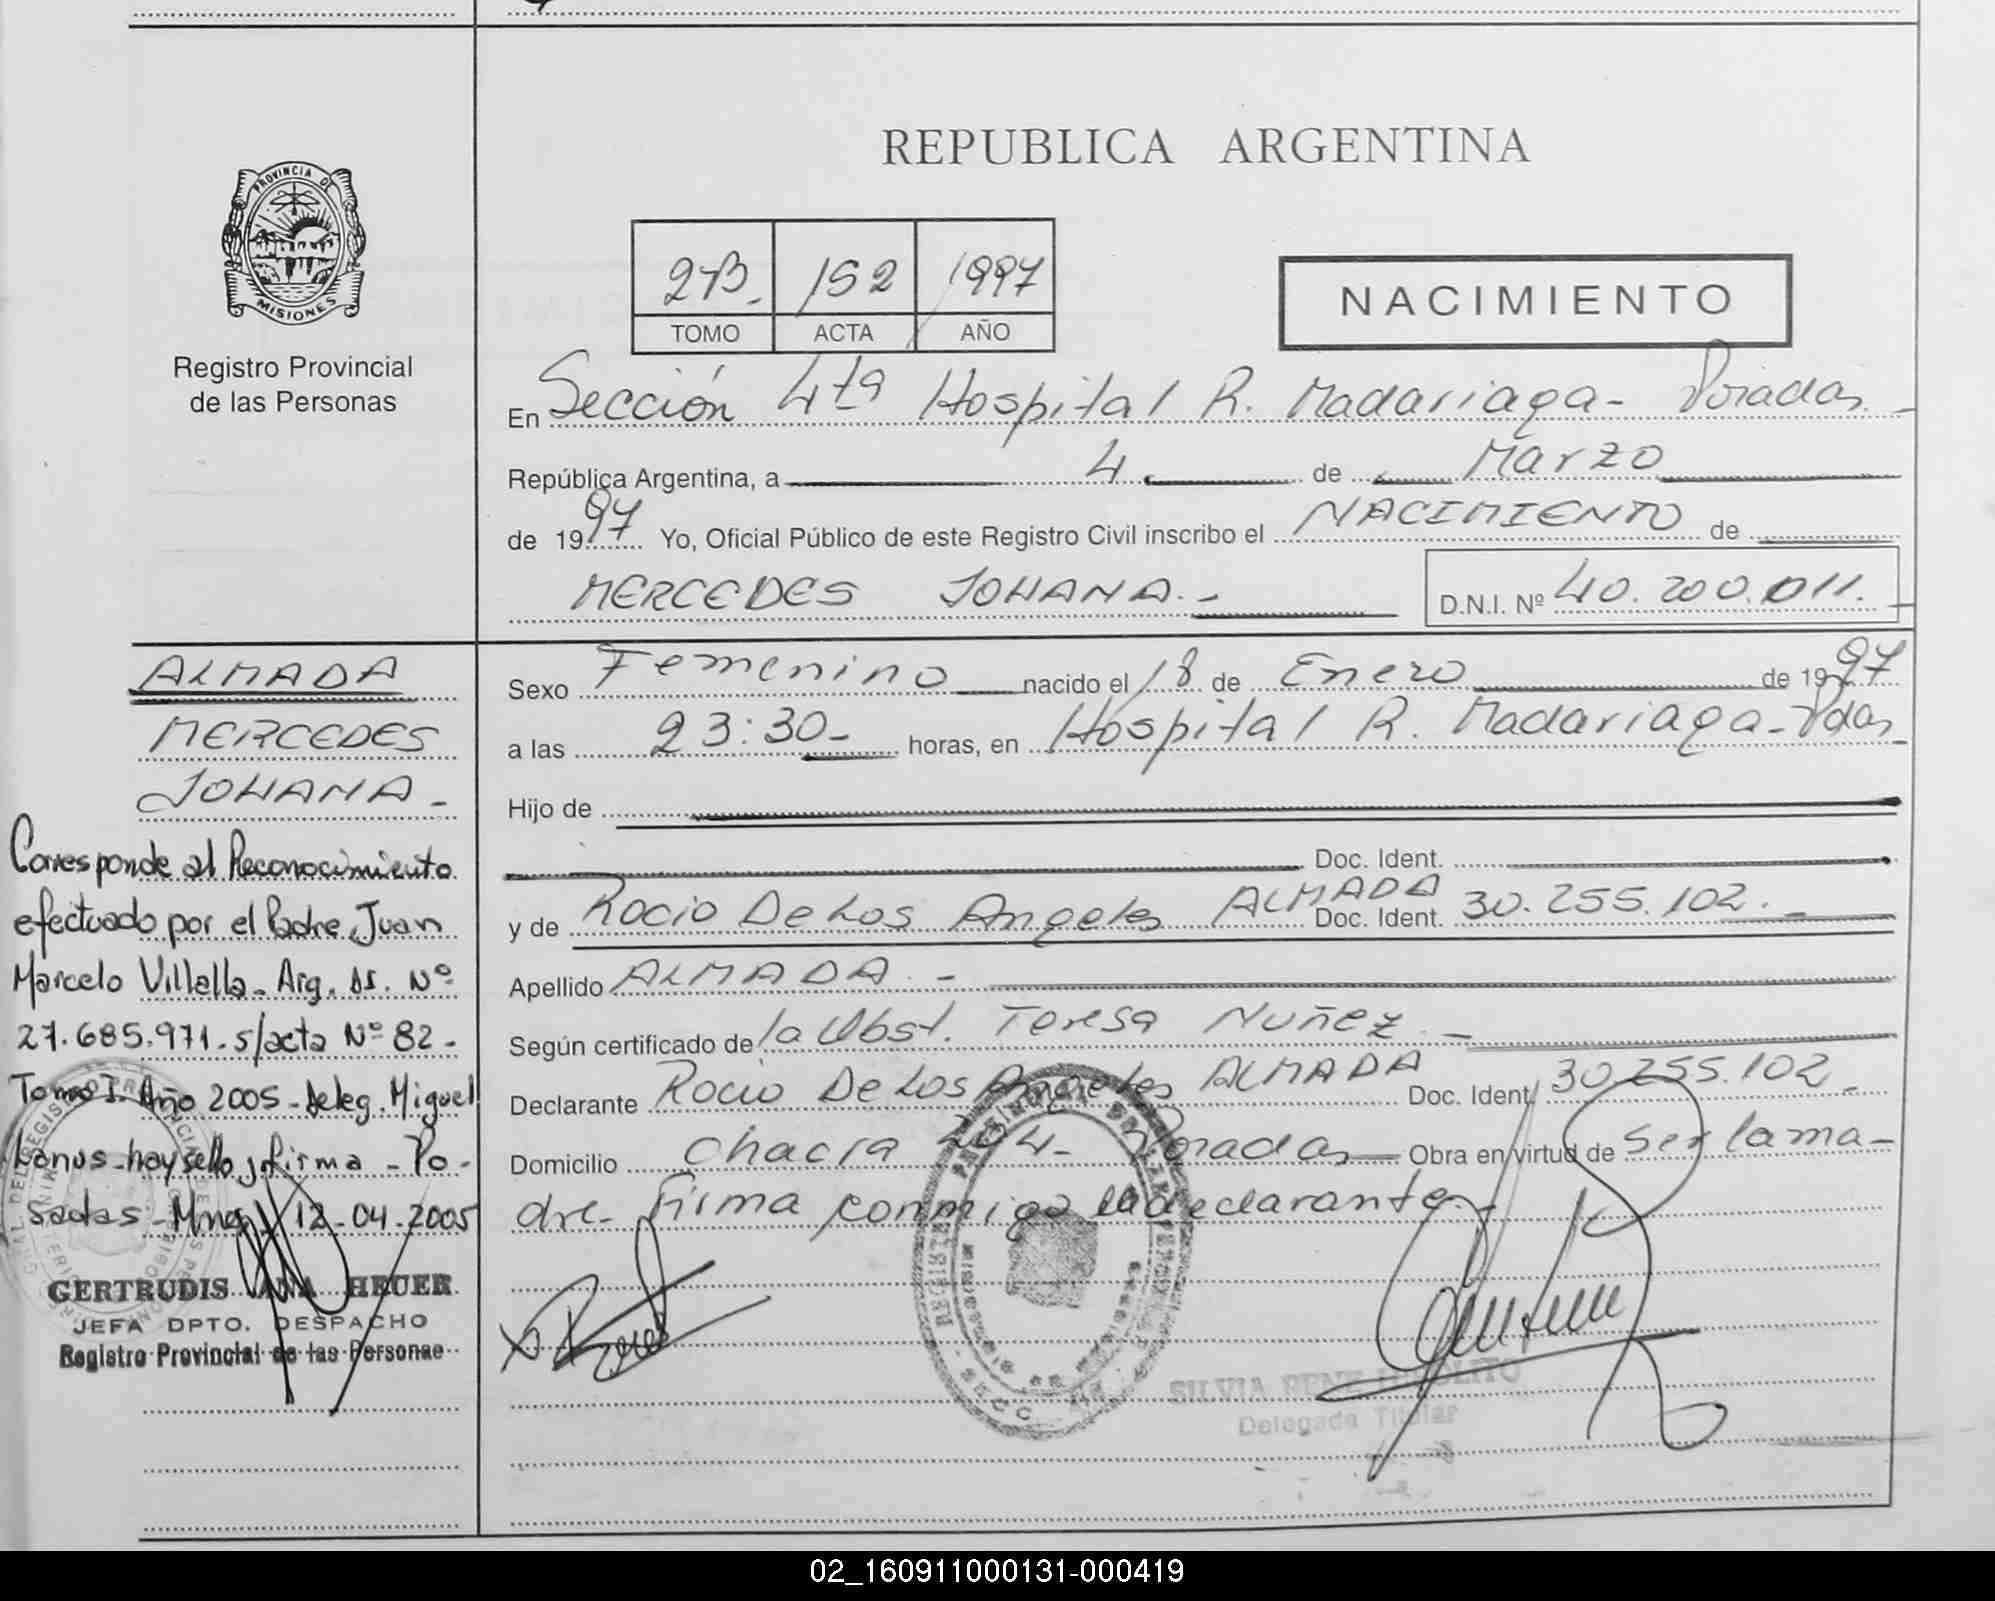 REPUBLICA ARGENTINA
PROVINCIA DE
MISIONES
Registro Provincial
de las Personas
2B. 152 1997
TOMO ACTA AÑO
NACIMIENTO
En Sección 4ta Hospital R. Madariaga - Posadas -
República Argentina, a 4 de Marzo
de 1997 Yo, Oficial Público de este Registro Civil inscribo el NACIMIENTO de
MERCEDES JOHANA. - D.N.I. Nº 40.200.011. -
ALMADA
MERCEDES
JOHANA -
Corresponde al Reconocimiento
efectuado por el Padre Juan
Marcelo Villalla - Arg. DI. Nº
27.685.971 - s/acta Nº 82 -
Tomo I. Año 2005 - deleg. Miguel
Lanus - hay sello y firma - Po -
sadas - Mnes, 12 - 04 - 2005
GERTRUDIS ANA HEUER
JEFA DPTO. DESPACHO
Registro Provincial de las Personas
Sexo Femenino nacido el 18 de Enero de 1997
a las 23:30 - horas, en Hospital R. Madariaga - Pdas -
Hijo de
Doc. Ident.
y de Rocio De Los Angeles ALMADA Doc. Ident. 30.255.102. -
Apellido ALMADA. -
Según certificado de la Obst. Teresa Nuñez. -
Declarante Rocio De Los Angeles ALMADA Doc. Ident. 30.255.102. -
Domicilio chacra 204 - Posadas Obra en virtud de Ser la ma -
dre - Firma conmigo la declarante. -
SILVIA RENE HIPOLITO
Delegada Titular
02_160911000131-000419